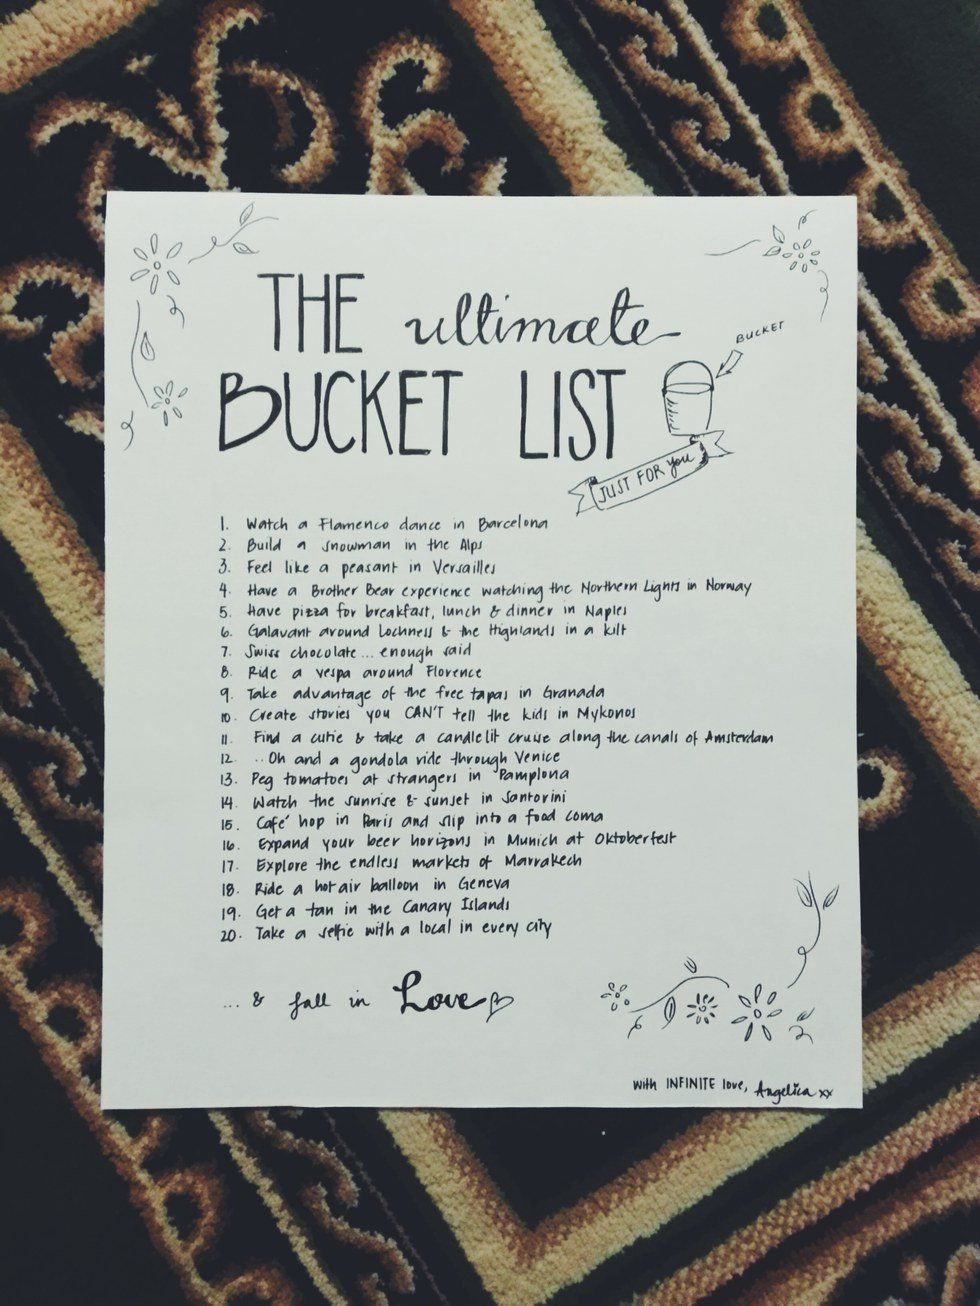 THE ultimate
BUCKET LIST
BUCKET
JUST FOR you
1. Watch a Flamenco dance in Barcelona
2. Build a snowman in the Alps
3. Feel like a peasant in Versailles
4. Have a Brother Bear experience watching the Northern Lights in Norway
5. Have pizza for breakfast, lunch & dinner in Naples
6. Galavant around Lochness & the Highlands in a kilt
7. Swiss chocolate... enough said
8. Ride a vespa around Florence
9. Take advantage of the free tapas in Granada
10. Create stories you CAN'T tell the kids in Mykonos
11. Find a cutie & take a candlelit cruise along the canals of Amsterdam
12. ..Oh and a gondola ride through Venice
13. Peg tomatoes at strangers in Pamplona
14. Watch the sunrise & sunset in Santorini
15. Café hop in Paris and slip into a food coma
16. Expand your beer horizons in Munich at Oktoberfest
17. Explore the endless markets of Marrakech
18. Ride a hot air balloon in Geneva
19. Get a tan in the Canary Islands
20. Take a selfie with a local in every city
... & fall in Love
With INFINITE love, Angelica xx